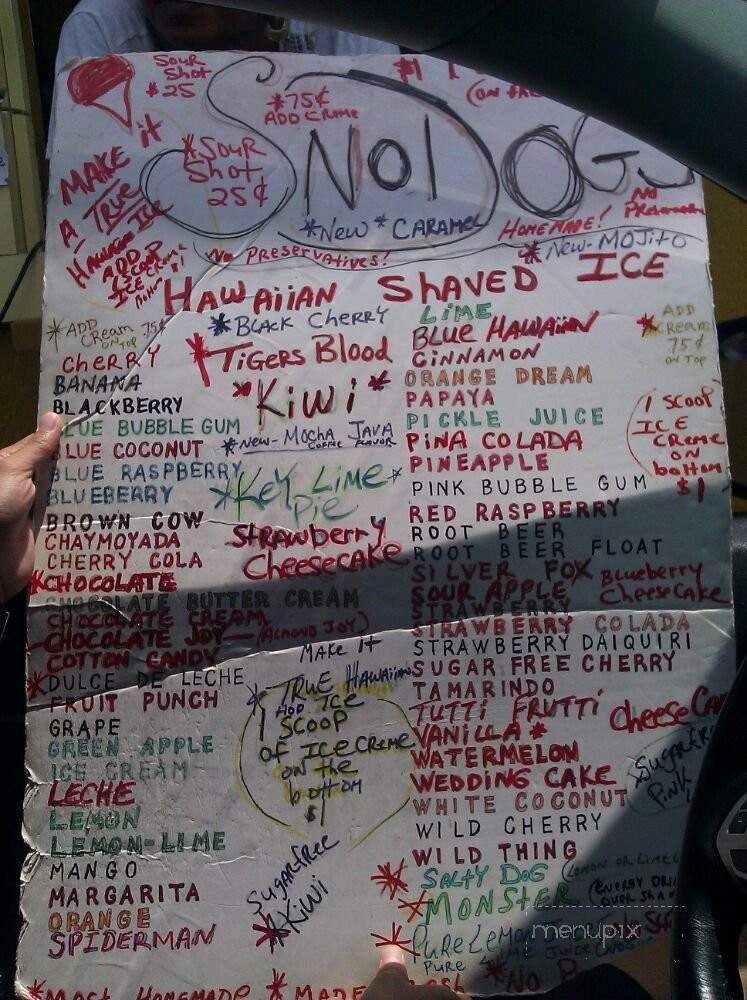 SOUR
SHOT
$25
*75¢
ADD CREME
$1
(ON
MAKE it
A TRUE
HAWAIIAN ICE
ADD
1 SCOOP
ICE CREME
Bottom $1
*SOUR
SHOT
25¢
SNO DOGS
*New* CARAMEL
HOMEMADE!
NO
No PRESERVATIVES!
*New-MOJITO
HAWAIIAN SHAVED ICE
*ADD
Cream 75¢
ON TOP
CHERRY
BANANA
BLACKBERRY
BLUE BUBBLE GUM
BLUE COCONUT
BLUE RASPBERRY
BLUEBERRY
BROWN COW
CHAYMOYADA
CHERRY COLA
*CHOCOLATE
CHOCOLATE BUTTER CREAM
CHOCOLATE CREAM
CHOCOLATE JOY-(ALMOND JOY)
COTTON CANDY
*DULCE DE LECHE
FRUIT PUNCH
GRAPE
GREEN APPLE
ICE CREAM
LECHE
LEMON
LEMON-LIME
MANGO
MARGARITA
ORANGE
SPIDERMAN
*BLACK CHERRY
*TIGERS BLOOD
*KIWI*
*New-MOCHA JAVA
COFFEE FLAVOR
*KEY LIME*
Pie
STRAWBERRY
CHEESECAKE
MAKE it
*TRUE HAWAIIAN
ADD ICE
1 SCOOP
OF ICE CREME
ON THE
bottom
$1
SUGARFREE
*KIWI
LIME
BLUE HAWAIIAN
CINNAMON
ORANGE DREAM
PAPAYA
PICKLE JUICE
PINA COLADA
PINEAPPLE
PINK BUBBLE GUM
RED RASPBERRY
ROOT BEER
ROOT BEER FLOAT
SILVER FOX
SOUR APPLE
STRAWBERRY
STRAWBERRY COLADA
STRAWBERRY DAIQUIRI
SUGAR FREE CHERRY
TAMARINDO
TUTTI FRUTTI
VANILLA *
WATERMELON
WEDDING CAKE
WHITE COCONUT
WILD CHERRY
WILD THING
*SALTY DOG (LEMON OR LIME
*MONSTER (ENERGY
OVER
*PURE
PURE LIME JUICE
*No
*ADD
CREAM
75¢
ON TOP
1 SCOOP
ICE
CREME
ON
bottom
$1
Blueberry
CHEESECAKE
CHEESE
SUGAR
PINK
*MOST HOMEMADE *MADE
menupix